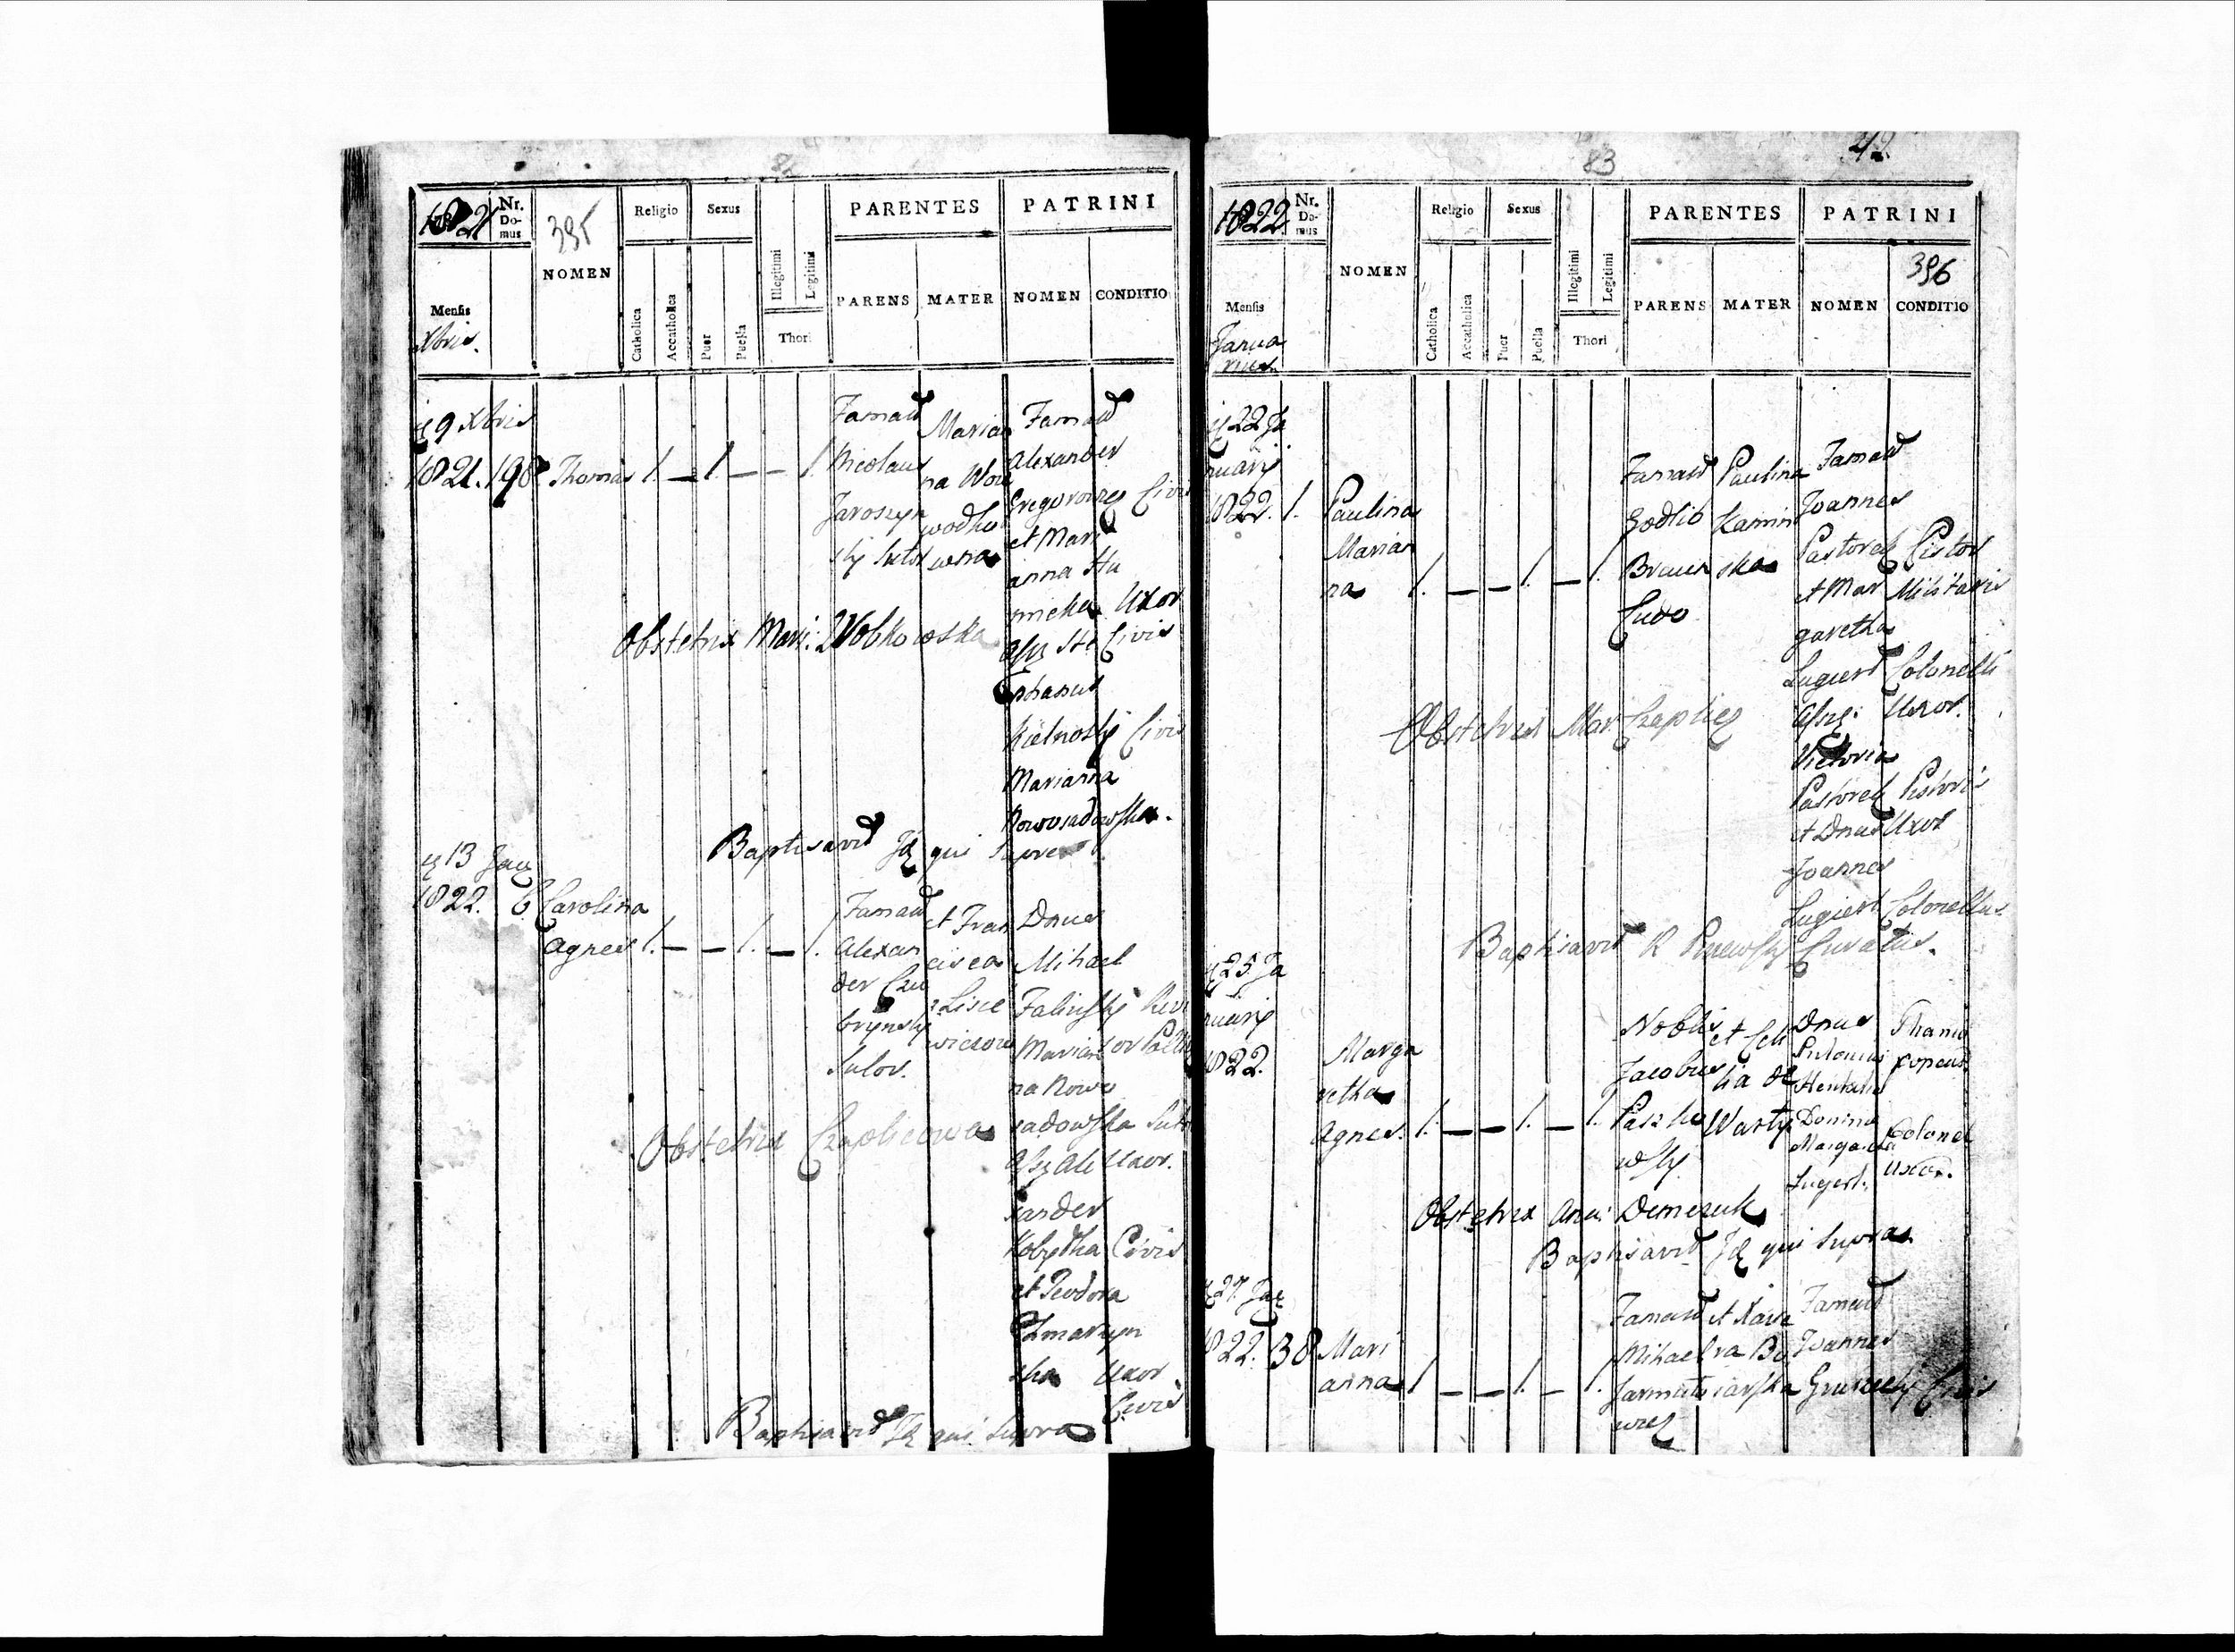 82
1821
Nr. Domus
395
NOMEN
Religio
Sexus
PARENTES
PATRINI
Mensis
Xbris.
Catholica
Accatholica
Puer
Puella
Illegitimi
Legitimi
Thori
PARENS
MATER
NOMEN
CONDITIO
9 Xbris
1821. 198 Thomas 1. — 1. — — 1.
Famat
Nicolaus
Jaroszyn
sky Sutor
Marian
na Woie
wodko
wna
Famat
Alexander
Gregorowicz Civis
et Mari
anna Hu
nicka Uxor
Civis
Ste
phanus
Kielnosky Civis
Marianna
Nowosadowska.
Obstetrix Mari: Wolkowska
Baptisavit Id qui supra
13 Jan
1822. 6 Carolina
Agnes 1. — — 1. — 1.
Famat
Alexan
der Czu
brynsky
Sutor.
et Fran
cisca
Lisie
wiczow
Dnus
Mihael
Falinsky
Marian
na Nowo
sadowska Sutor
Ale Uxor.
xander
Kobydka Civis
et Teodora
ska Uxor
Civis
Obstetrix Czaplicowa
Baptisavit Id qui supra
83
42.
1822
Nr. Domus
NOMEN
Religio
Sexus
PARENTES
PATRINI
396
Mensis
Janua
rius
Catholica
Accatholica
Puer
Puella
Illegitimi
Legitimi
Thori
PARENS
MATER
NOMEN
CONDITIO
22 Ja
nuarij
1822. 1. Paulina
Marian
na 1. — — 1. — 1.
Famat
Godlib
Braun
Paulina
Kamin
ska
Famat
Joannes
Pastorek Pistor
et Mar Militaris
garetha
Lugiert Colonelli
Uxor.
Victoria
Pastorek Pistoris
et Dnus Uxor
Joannes
Lugiert Colonellus
Obstetrix Mar Czaplic
Baptisavit R Curatus.
25 Ja
nuarij
1822.
Marga
retha
Agnes. 1. — — 1. — 1.
Nobilis
Jacobus
Paszko
wsky
et Celi
lia de
Warty
Dnus
Antonius
Domina
Margareta Colonel
Lugert. Uxor.
Obstetrix Demczuk
Baptisavit Id qui supra
27. Jan
1822. 38 Mari
anna 1 — — 1. — 1.
Famat
Mihael
Jarmuto
wicz
et Xave
ra Bo
iarska
Famat
Joannes
Civis